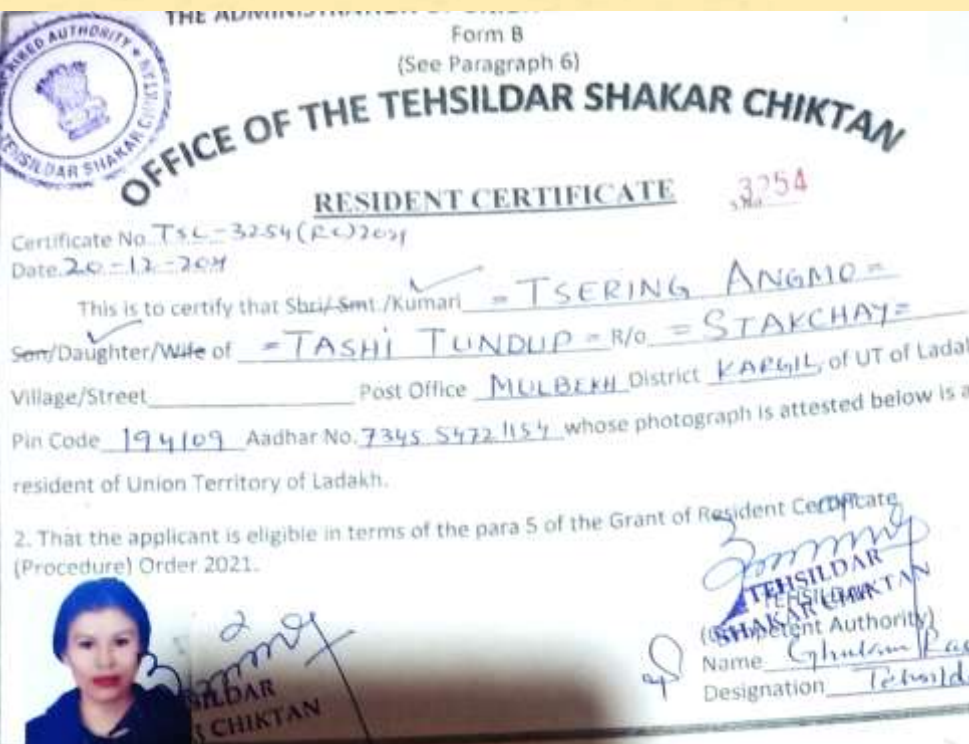 THE ADMINISTRATION OF UNION
Form B
(See Paragraph 6)
OFFICE OF THE TEHSILDAR SHAKAR CHIKTAN
RESIDENT CERTIFICATE
S.No. 3254
Certificate No. TSC-3254(RC)2021
Date. 20-12-2021
This is to certify that Shri/Smt./Kumari = TSERING ANGMO =
Son/Daughter/Wife of = TASHI TUNDUP = R/o = STAKCHAY =
Village/Street Post Office MULBEKH District KARGIL, of UT of Ladak
Pin Code 194109 Aadhar No. 7345 5472 1154 whose photograph is attested below is a
resident of Union Territory of Ladakh.
2. That the applicant is eligible in terms of the para 5 of the Grant of Resident Certificate
(Procedure) Order 2021.
TEHSILDAR
SHAKAR CHIKTAN
(Competent Authority)
Name Ghulam
Designation Tehsild
SILDAR
CHIKTAN